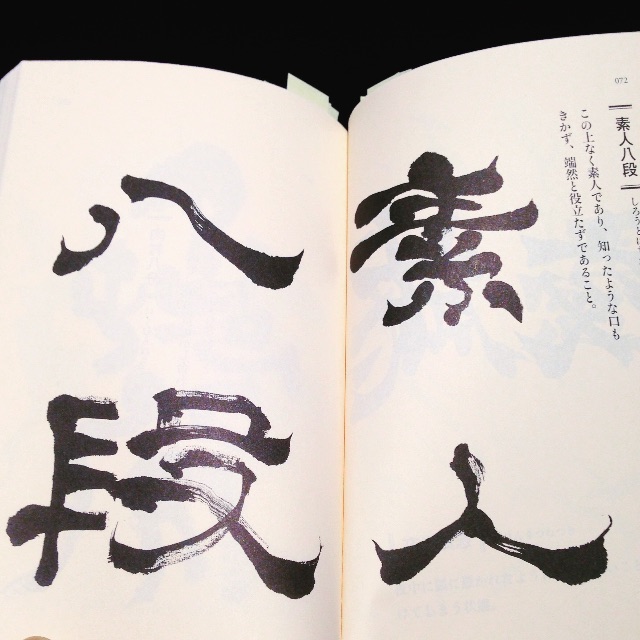 072
素人八段
しろうとは
この上なく素人であり、知ったような口も
きかず、端然と役立たずであること。
素人
八段